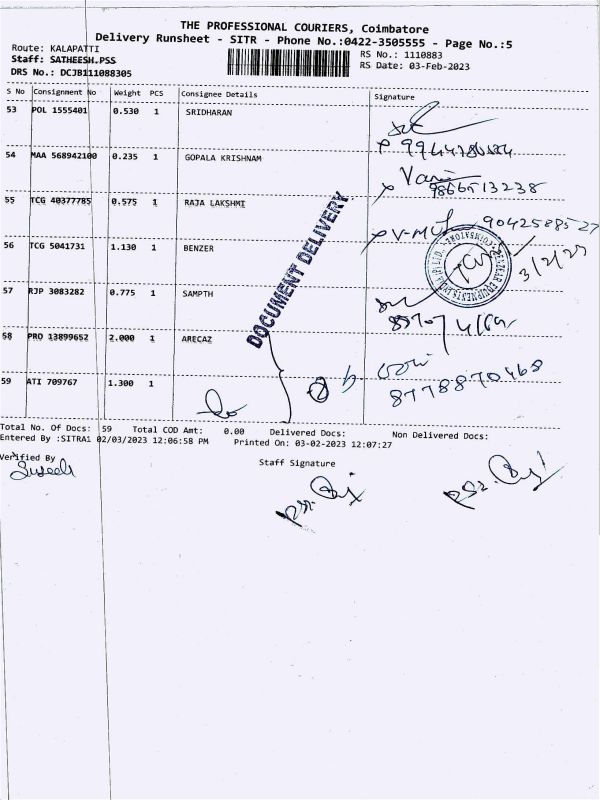 THE PROFESSIONAL COURIERS, Coimbatore
Delivery Runsheet - SITR - Phone No.:0422-3505555 - Page No.:5
Route: KALAPATTI
RS No.: 1110883
Staff: SATHEESH.PSS
RS Date: 03-Feb-2023
DRS No.: DCJB111088305
S No Consignment No Weight PCS Consignee Details Signature
53 POL 1555401 0.530 1 SRIDHARAN
54 MAA 568942100 0.235 1 GOPALA KRISHNAM
Vani
9866513238
55 TCG 40377785 0.575 1 RAJA LAKSHMI
9042588527
56 TCG 5041731 1.130 1 BENZER
3/2/23
57 RJP 3083282 0.775 1 SAMPTH
58 PRO 13899652 2.000 1 ARECAZ
59 ATI 709767 1.300 1
8778870468
DOCUMENT DELIVERY
Total No. Of Docs: 59 Total COD Amt: 0.00 Delivered Docs: Non Delivered Docs:
Entered By :SITRA1 02/03/2023 12:06:58 PM Printed On: 03-02-2023 12:07:27
Verified By
Staff Signature